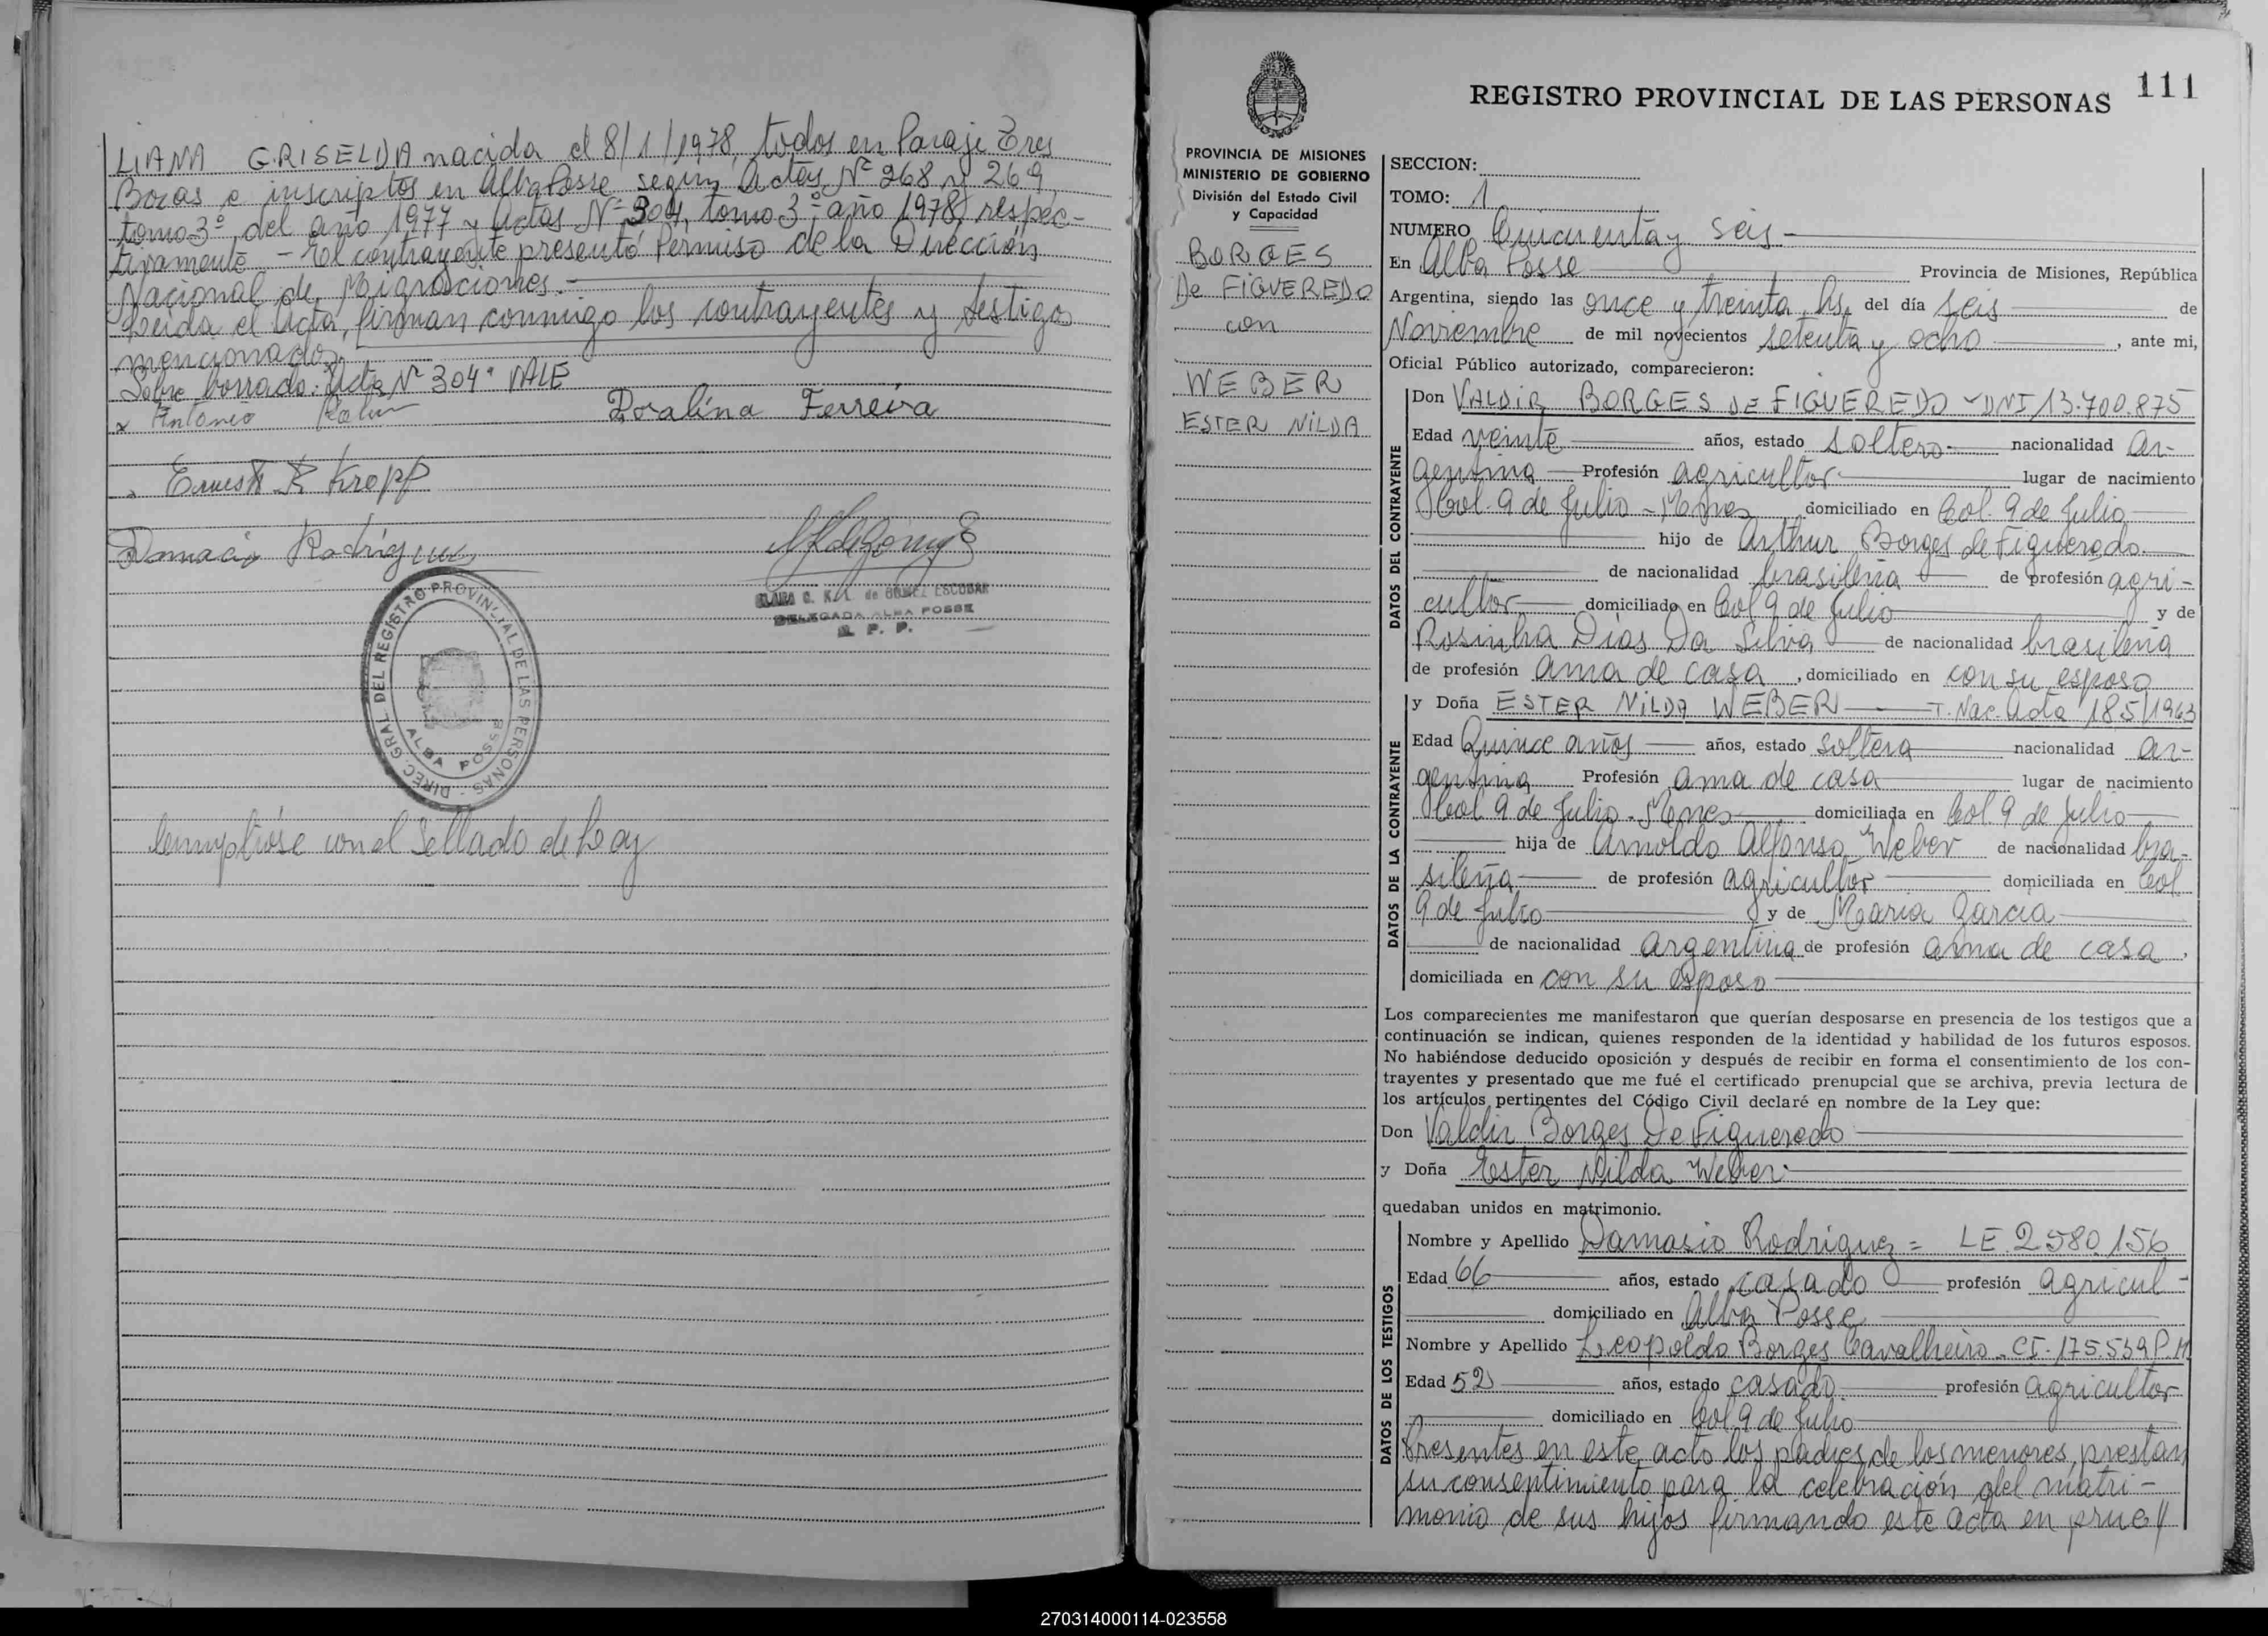 LIANA GRISELDA nacida el 8/1/1978, todos en Paraje Tres
Bocas e inscriptos en Alba Posse según Actas Nº 268 y 269,
tomo 3º del año 1977 y Actas Nº 304, tomo 3º, año 1978, respec-
tivamente. - El contrayente presentó Permiso de la Dirección
Nacional de Migraciones.-
Leida el Acta, firman conmigo los contrayentes y testigos
mencionados.
Sobre borrado: Acta Nº 304" VALE
x Antonio
Rosalina Ferreira
Ernesto R Kropp
Damacio Rodriguez
CLARA G. K. de GOMEZ ESCOBAR
DELEGADA ALBA POSSE
R. P. P.
DIREC. GRAL. DEL REGISTRO PROVINCIAL DE LAS PERSONAS -
ALBA POSSE
Cumplióse con el Sellado de Ley
111
REGISTRO PROVINCIAL DE LAS PERSONAS
PROVINCIA DE MISIONES
MINISTERIO DE GOBIERNO
División del Estado Civil
y Capacidad
BORGES
De FIGUEREDO
con
WEBER
ESTER NILDA
SECCION:
TOMO: 1
NUMERO Cincuenta y Seis -
En Alba Posse Provincia de Misiones, República
Argentina, siendo las once y treinta hs. del día seis de
Noviembre de mil novecientos setenta y ocho, ante mi,
Oficial Público autorizado, comparecieron:
DATOS DEL CONTRAYENTE
Don VALDIR BORGES DE FIGUEREDO - DNI 13.700.875
Edad veinte años, estado soltero - nacionalidad ar-
gentina Profesión agricultor lugar de nacimiento
Col. 9 de Julio - Mnes domiciliado en Col. 9 de Julio
hijo de Arthur Borges de Figueredo.
de nacionalidad brasileña de profesión agri-
cultor domiciliado en Col 9 de Julio y de
Rosinha Dias Da Silva de nacionalidad brasileña
de profesión ama de casa, domiciliado en con su esposo
DATOS DE LA CONTRAYENTE
y Doña ESTER NILDA WEBER - T. Nac. Acta 185/1963
Edad Quince años años, estado soltera nacionalidad ar-
gentina Profesión ama de casa lugar de nacimiento
Col. 9 de Julio - Mnes domiciliada en Col 9 de Julio
hija de Arnoldo Alfonso Weber de nacionalidad bra-
sileña de profesión agricultor domiciliada en Col
9 de Julio y de Maria Garcia
de nacionalidad argentina de profesión ama de casa,
domiciliada en con su esposo
Los comparecientes me manifestaron que querían desposarse en presencia de los testigos que a
continuación se indican, quienes responden de la identidad y habilidad de los futuros esposos.
No habiéndose deducido oposición y después de recibir en forma el consentimiento de los con-
trayentes y presentado que me fué el certificado prenupcial que se archiva, previa lectura de
los artículos pertinentes del Código Civil declaré en nombre de la Ley que:
Don Valdir Borges De Figueredo
y Doña Ester Nilda Weber
quedaban unidos en matrimonio.
DATOS DE LOS TESTIGOS
Nombre y Apellido Damasio Rodriguez = LE 2580.156
Edad 66 años, estado casado profesión agricul-
domiciliado en Alba Posse
Nombre y Apellido Leopoldo Borges Cavalheiro - CI. 175.539 P.M
Edad 52 años, estado casado profesión agricultor
domiciliado en Col 9 de Julio
Presentes en este acto los padres de los menores, prestan
su consentimiento para la celebración del matri-
monio de sus hijos firmando este acta en prue//
270314000114-023558